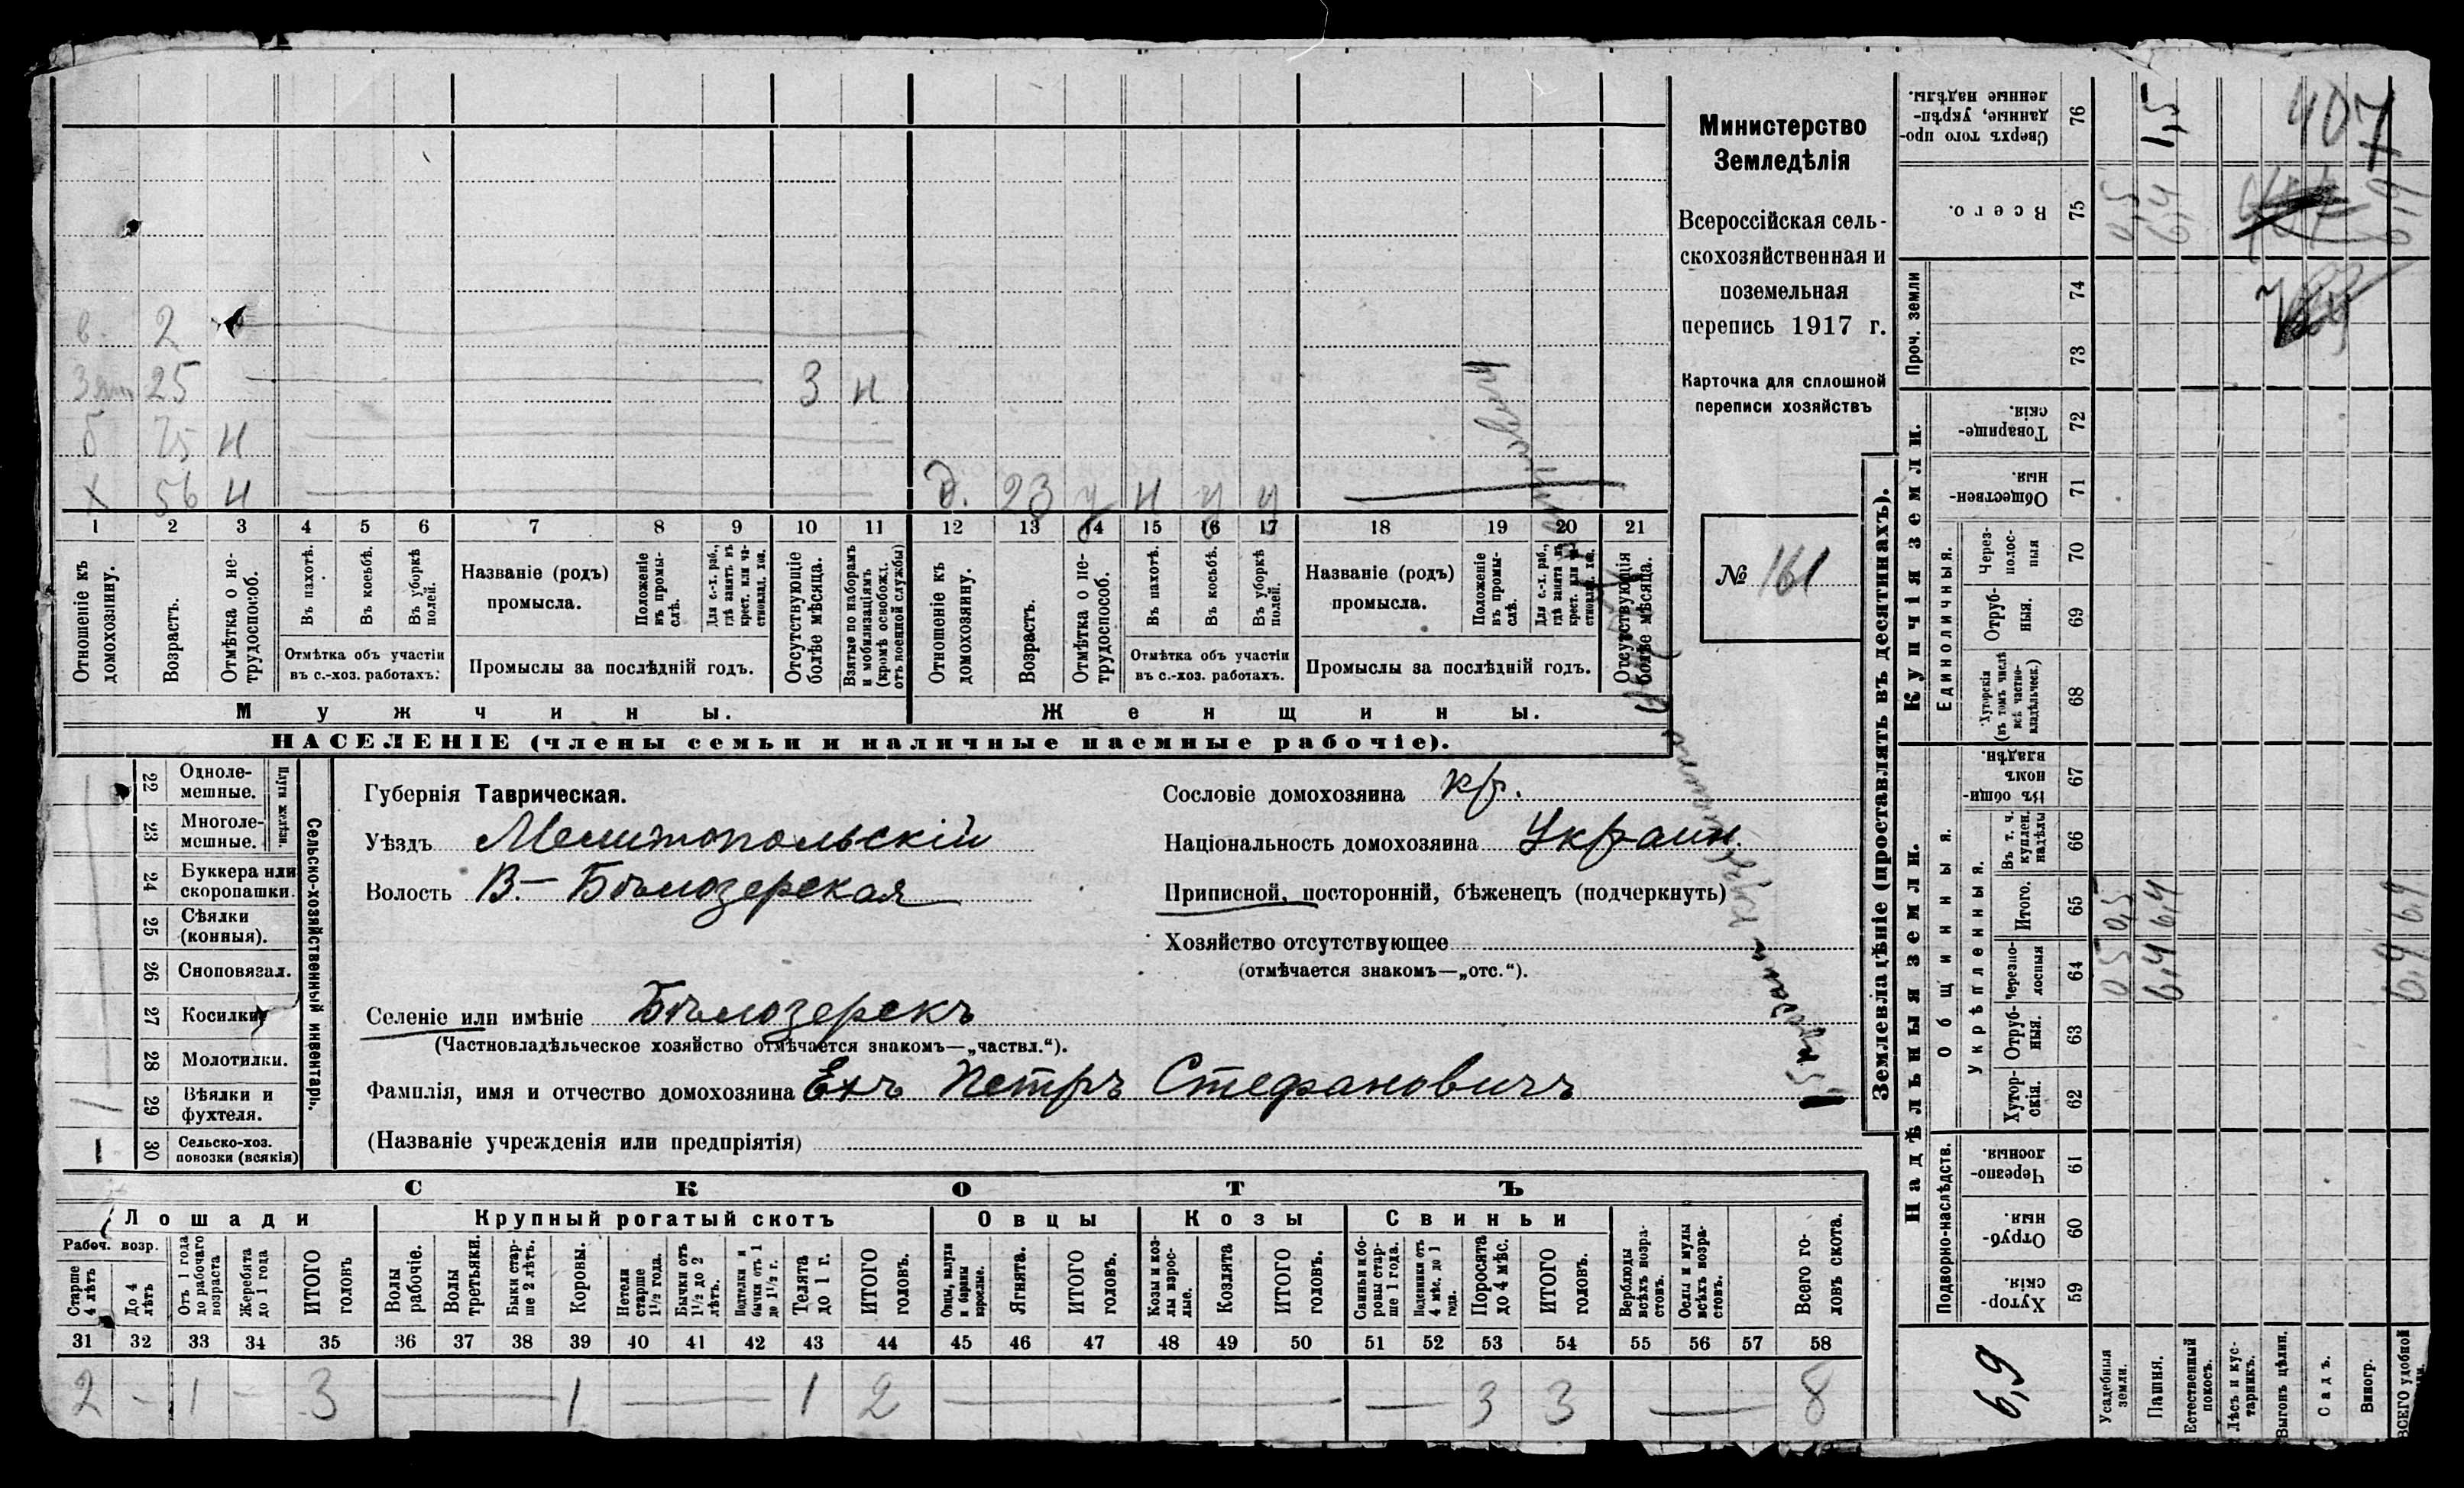 в. 2
Зять 25 3 н
б 25 н
х 56 н д. 23 у н у у
1 2 3 4 5 6 7 8 9 10 11 12 13 14 15 16 17 18 19 20 21
Отношеніе къ домохозяину.
Возрастъ.
Отмѣтка о не-
трудоспособ.
Въ пахотѣ.
Въ косьбѣ.
Въ уборкѣ
полей.
Отмѣтка объ участіи
въ с.-хоз. работахъ.
Названіе (родъ)
промысла.
Положеніе
въ промы-
слѣ.
Для с.-х. раб.,
гдѣ занятъ въ
крест. или ча-
стновлад. хоз.
Промыслы за послѣдній годъ.
Отсутствующіе
болѣе мѣсяца.
Взятые по наборамъ
и мобилизаціямъ
(кромѣ освобожд.
отъ военной службы)
Отношеніе къ
домохозяину.
Возрастъ.
Отмѣтка о не-
трудоспособ.
Въ пахотѣ.
Въ косьбѣ.
Въ уборкѣ
полей.
Отмѣтка объ участіи
въ с.-хоз. работахъ.
Названіе (родъ)
промысла.
Положеніе
въ промы-
слѣ.
Для с.-х. раб.,
гдѣ занята въ
крест. или ча-
стновлад. хоз.
Промыслы за послѣдній годъ.
Отсутствующія
болѣе мѣсяца.
Мужчины.
Женщины.
НАСЕЛЕНІЕ (члены семьи и наличные наемные рабочіе).
Министерство
Земледѣлія
Всероссійская сель-
скохозяйственная и
поземельная
перепись 1917 г.
Карточка для сплошной
переписи хозяйствъ
№ 161
Сельско-хозяйственный инвентарь.
Плуги желѣзн.
22 Одноле-
мешные.
23 Многоле-
мешные.
24 Буккера или
скоропашки.
25 Сѣялки
(конныя).
26 Сноповязал.
27 Косилки
28 Молотилки.
29 Вѣялки и
фухтеля.
1
30 Сельско-хоз.
повозки (всякія)
1
Губернія Таврическая.
Уѣздъ Мелитопольскій
Волость В.-Бѣлозерская
Сословіе домохозяина кр.
Національность домохозяина Украин.
Приписной, посторонній, бѣженецъ (подчеркнуть)
Хозяйство отсутствующее
(отмѣчается знакомъ—„отс.“).
Селеніе или имѣніе Бѣлозерскъ
(Частновладѣльческое хозяйство отмѣчается знакомъ—„частвл.“).
Фамилія, имя и отчество домохозяина Ехъ Петръ Стефановичъ
(Названіе учрежденія или предпріятія)
СКОТЪ
Лошади
Крупный рогатый скотъ
Овцы
Козы
Свиньи
Рабоч. возр.
Старше
4 лѣтъ
До 4
лѣтъ
Отъ 1 года
до рабочаго
возраста
Жеребята
до 1 года
ИТОГО
головъ
Волы
рабочіе.
Волы
третьяки.
Быки стар-
ше 2 лѣтъ.
Коровы.
Нетели
старше
1½ года.
Бычки отъ
1½ до 2
лѣтъ.
Подтелки и
бычки отъ 1
до 1½ г.
Телята
до 1 г.
ИТОГО
головъ.
Овцы, валухи
и бараны
взрослые.
Ягнята.
ИТОГО
головъ.
Козы и коз-
лы взрос-
лые.
Козлята
ИТОГО
головъ.
Свиньи и бо-
ровы стар-
ше 1 года.
Подсвинки отъ
4 мѣс. до 1
года.
Поросята
до 4 мѣс.
ИТОГО
головъ.
Верблюды
всѣхъ возра-
стовъ.
Ослы и мулы
всѣхъ возра-
стовъ.
Всего го-
ловъ скота.
31 32 33 34 35 36 37 38 39 40 41 42 43 44 45 46 47 48 49 50 51 52 53 54 55 56 57 58
2 - 1 - 3 — 1 — 1 2 — — 3 3 — 8
Землевладѣніе (проставлять въ десятинахъ).
Купчія земли.
Надѣльныя земли.
Сверхъ того про-
данные, укрѣп-
ленные надѣлы.
76
1,5
407
Всего.
75
0,5
6,4
6,9
Проч. земли
74
73
Товарище-
скія.
72
Обществен-
ныя.
71
Единоличныя.
Через-
полос-
ныя
70
Отруб-
ныя.
69
Хуторскія
(въ томъ числѣ
всѣ частно-
владѣльческ.)
68
Общинныя.
Въ общин-
номъ
владѣн.
67
Укрѣпленныя.
Въ т. ч.
куплен.
надѣлы
66
Итого.
65
0,5
6,4
6,9
Черезпо-
лосныя
64
0,5
6,4
6,9
Отруб-
ныя.
63
Хутор-
скія.
62
Подворно-наслѣдств.
Черезпо-
лосныя.
61
Отруб-
ныя.
60
Хутор-
скія.
59
6,9
Усадебныя
земли.
Пашня.
Естественный
покосъ.
Лѣсъ и кус-
тарникъ.
Выгонъ цѣлин.
Садъ.
Виногр.
ВСЕГО удобной